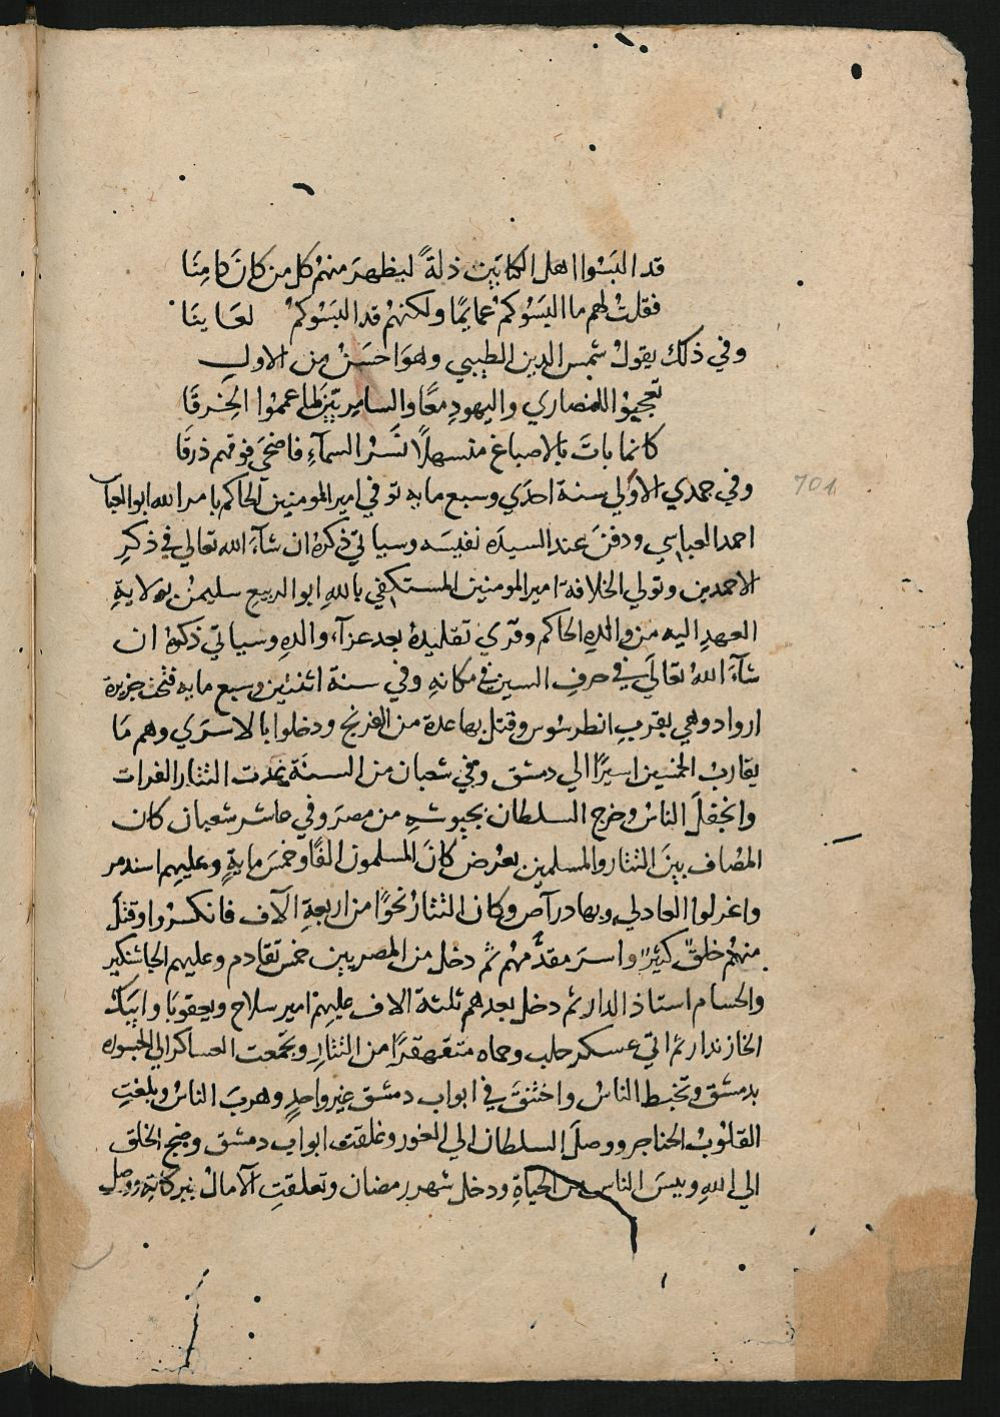 قد البسوا اهل الكتابين ذلةً ليظهرَ منهم كل من كانَ كامِنَا
فقلتُ لهم ما البسَوُكمْ عمايمًا ولكنهمْ قد البسَوُكمْ لعَاينَا
وفي ذلك يقولُ شمس الدين الطيبي وهوَ احسَنْ من الاولِ
تعجبوا للنصاري واليهودِ معًا والسامريّينَ لما عمموا الخِرقَا
كانما باتَ بالاصباغ منسهلًا نَسْرُ السمآءِ فاضحَي فوقهم ذرقَا
وفي جمدي الاوَلي سنة احدَي وسبع مايه توفي امير المومنين الحاكم بامر الله ابو العبا
701
احمد العباسي ودفنَ عند السيدَه نفيسَه وسياتي ذكرهُ ان شآءَ الله تعالي في ذكرِ
الاحمدين وتولي الخلافةَ امير المومنين المستكفي باللهِ ابو الربيع سليمنْ بولايةِ
العهدِ اليه من والدِهِ الحاكم وقري تقليدهُ بعد عزآء والدِهِ وسياتي ذكرهُ ان
شآءَ اللهُ تعالَي في حرفِ السين في مكانهِ وفي سنة اثنتين وسبع مايه فتحت جزيرة
ارواد وهي بقربِ انطرسُوس وقتل بها عدة من الفرنج ودخلوا بالاسرَي وهم مَا
يقاربُ الخمسين اسيرًا الي دمشق وفي شعبان من السنَة عدت التتار الفرات
وانجفلَ الناسُ وخرج السلطان بجيوشهِ من مصرَ وفي عاشر شعبان كان
المصَاف بينَ التتار والمسلمين بعُرض كانَ المسلمون الفًا وخمسَ مايةٍ وعليهم اسندمر
واغرلوا العادلي وبهادر آص وكان التتارُ نحوًا من اربعةِ الآف فانكسرُوا وقتلَ
منهُم خلقٌ كثيرٌ واسرَ مقدَّمهُم ثم دخل من المصريين خمس تقادم وعليهم الجاشنكير
والحسام استاذ الدار ثم دخل بعدهم ثلثة الاف عليهمْ امير سلاح ويعقوبَا وايبَك
الخازندار ثم اتي عسكر حلب وحماه متقهقرًا من التتارِ وتجمّعت العساكر الي الجسوره
بدمشق وتخبط الناسُ واختنقَ في ابواب دمشق غير واحدٍ وهربَ الناسُ وبلغتِ
القلوبُ الحناجر ووصلَ السلطان الي الغور وغلقت ابواب دمشق وضج الخلق
الي اللهِ وييسَ الناس من الحياةِ ودخل شهر رمضان وتعلقتِ الآمالُ ببركاتِهِ ووصل